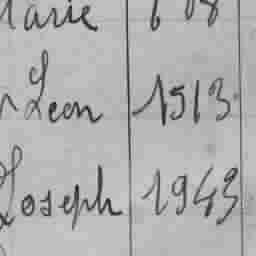 Marie 608
Léon 1513
Joseph 1943